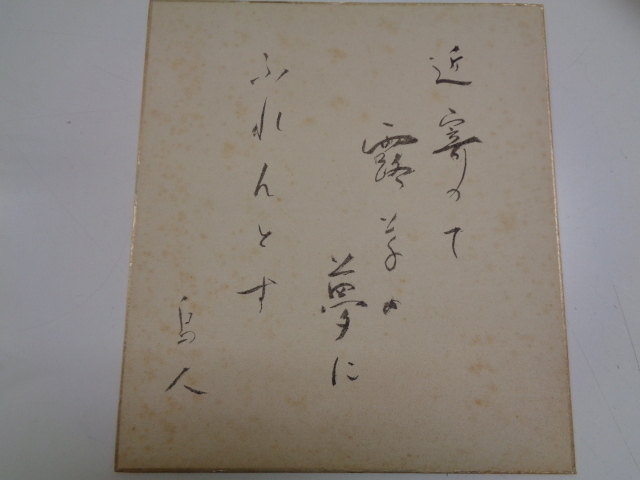 近寄りて
露草の
夢に
ふれんとす
鳥人